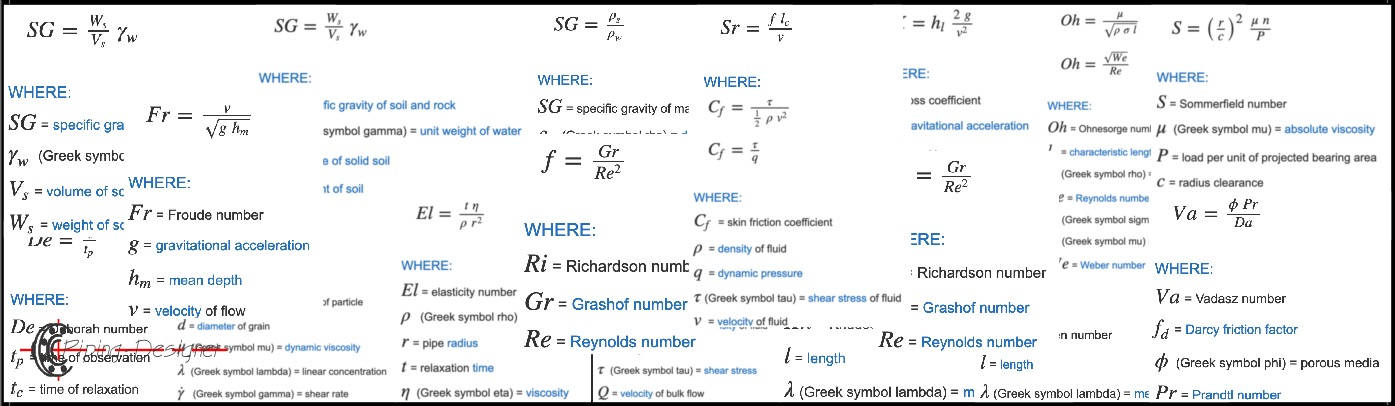 SG = W_s / V_s γ_w
WHERE:
SG = specific gra
γ_w (Greek symbo
V_s = volume of so
W_s = weight of so
De = / t_p
WHERE:
De = Deborah number
t_p = time of observation
t_c = time of relaxation
Piping Designer
Fr = v / √(g h_m)
WHERE:
Fr = Froude number
g = gravitational acceleration
h_m = mean depth
v = velocity of flow
d = diameter of grain
symbol mu) = dynamic viscosity
λ (Greek symbol lambda) = linear concentration
γ̇ (Greek symbol gamma) = shear rate
SG = W_s / V_s γ_w
WHERE:
fic gravity of soil and rock
symbol gamma) = unit weight of water
e of solid soil
nt of soil
of particle
El = t η / ρ r²
WHERE:
El = elasticity number
ρ (Greek symbol rho)
r = pipe radius
t = relaxation time
η (Greek symbol eta) = viscosity
SG = ρ_s / ρ_w
WHERE:
SG = specific gravity of ma
f = Gr / Re²
WHERE:
Ri = Richardson numb
Gr = Grashof number
Re = Reynolds number
τ (Greek symbol tau) = shear stress
Q = velocity of bulk flow
Sr = f l_c / v
WHERE:
C_f = τ / ½ ρ v²
C_f = τ / q
WHERE:
C_f = skin friction coefficient
ρ = density of fluid
q = dynamic pressure
τ (Greek symbol tau) = shear stress of fluid
v = velocity of fluid
l = length
λ (Greek symbol lambda) = m
= h_l 2 g / v²
ERE:
oss coefficient
avitational acceleration
= Gr / Re²
ERE:
Richardson number
= Grashof number
Re = Reynolds number
l = length
λ (Greek symbol lambda) = me
Oh = μ / √(ρ σ l)
Oh = √We / Re
WHERE:
Oh = Ohnesorge numl
l = characteristic lengt
(Greek symbol rho) =
e = Reynolds numbe
(Greek symbol sigm
(Greek symbol mu)
e = Weber number
n number
S = (r / c)² μ n / P
WHERE:
S = Sommerfield number
μ (Greek symbol mu) = absolute viscosity
P = load per unit of projected bearing area
c = radius clearance
Va = ϕ Pr / Da
WHERE:
Va = Vadasz number
f_d = Darcy friction factor
ϕ (Greek symbol phi) = porous media
Pr = Prandtl number